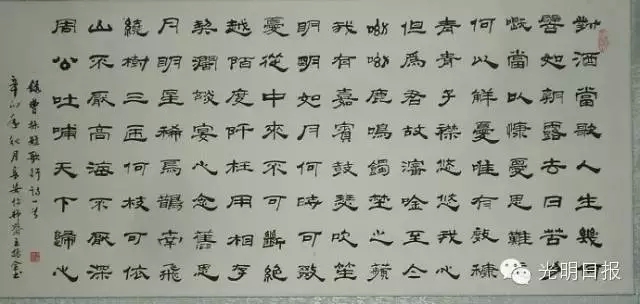 對酒當歌人生幾何
譬如朝露去日苦多
慨當以慷憂思難忘
何以解憂唯有杜康
青青子襟悠悠我心
但爲君故沈吟至今
呦呦鹿鳴食野之蘋
我有嘉賓鼓瑟吹笙
明明如月何時可掇
憂從中來不可斷絕
越陌度阡枉用相存
契闊談宴心念舊恩
月明星稀烏鵲南飛
繞樹三匝何枝可依
山不厭高海不厭深
周公吐哺天下歸心
錄曹操短歌行詩一首
辛卯年秋月
光明日报